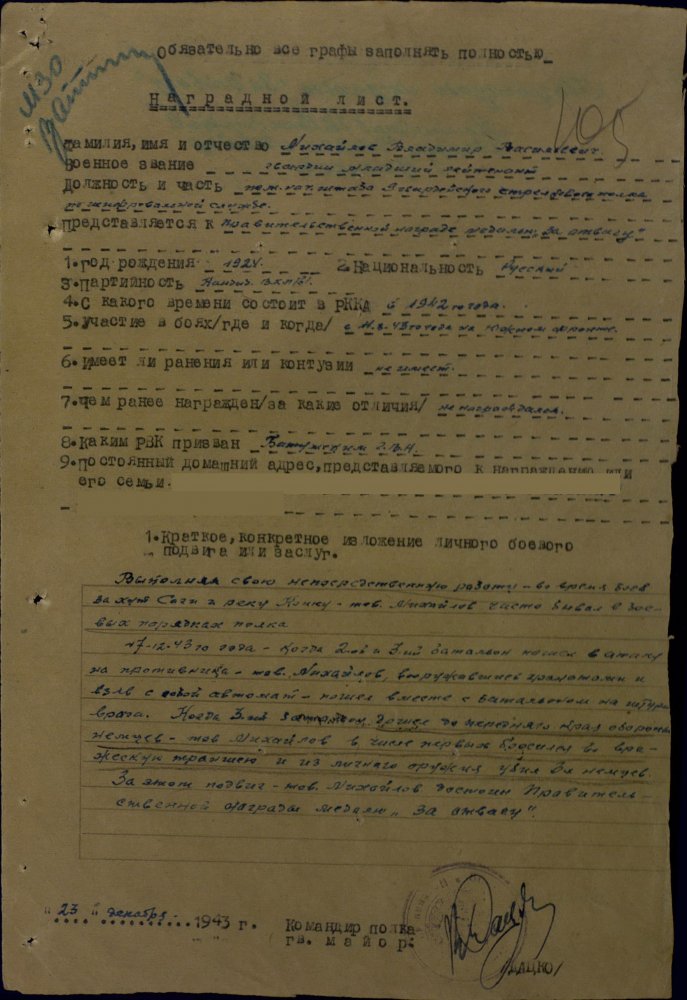 Обязательно все графы заполнять полностью
Наградной лист.
105
Фамилия, имя и отчество Михайлов Владимир Васильевич.
Военное звание гвардии младший лейтенант
Должность и часть пом. нач. штаба гвардейского стрелкового полка
по шифровальной службе.
Представляется к правительственной награде медалью "За отвагу"
1. год рождения 1924. 2. Национальность Русский
3. Партийность Канд. ВКП/б/.
4. С какого времени состоит в РККА с 1942 го года.
5. Участие в боях/где и когда/ с 43 го года на южном фронте.
6. Имеет ли ранения или контузии не имеет.
7. чем ранее награжден/за какие отличия/ не награждался.
8. Каким РВК призван
9. Постоянный домашний адрес, представляемого к награждению или
его семьи.
1. Краткое, конкретное изложение личного боевого
подвига или заслуг.
Выполняя свою непосредственную работу - во время боев
за хут. и реку Конку - тов. Михайлов часто бывал в бое-
вых порядках полка
17-12-43 го года - когда 2ой и 3ий батальон пошел в атаку
на противника - тов. Михайлов, вооружившись гранатами и
взяв с собой автомат - пошел вместе с батальоном на штурм
врага. Когда 3ий батальон дошел до переднего края обороны
немцев - тов Михайлов в числе первых бросился во вра-
жескую траншею и из личного оружия убил 3х немцев.
За этот подвиг - тов. Михайлов достоин Правитель-
ственной награды медалю "За отвагу".
"23" декабря 1943 г.
Командир полка
гв. майор:
/ДАЦКО/